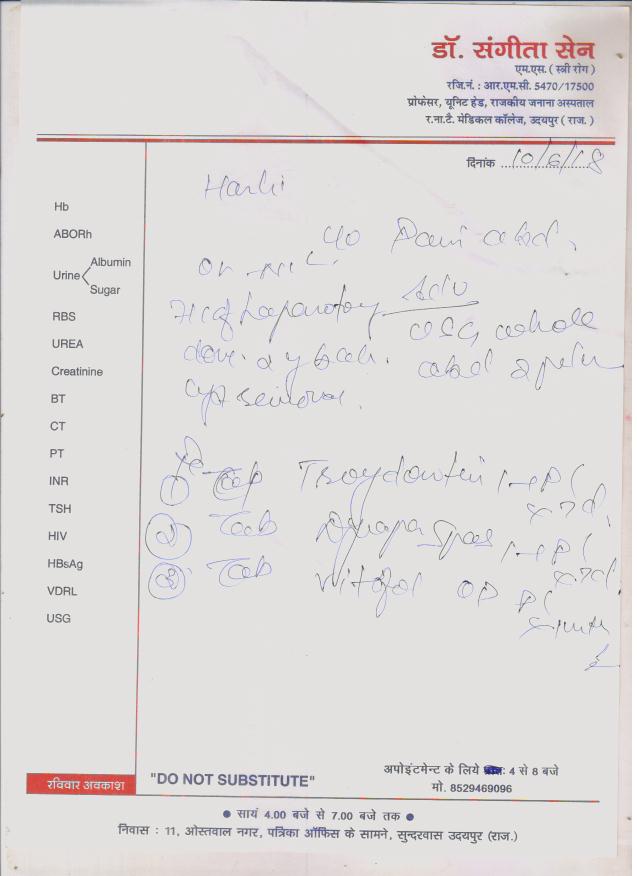 डॉ. संगीता सेन
एम.एस. ( स्त्री रोग )
रजि.नं. : आर.एम.सी. 5470/17500
प्रोफेसर, यूनिट हेड, राजकीय जनाना अस्पताल
र.ना.टै. मेडिकल कॉलेज, उदयपुर ( राज. )
दिनांक 10/6/18
Hb
ABORh
Urine Albumin
Sugar
RBS
UREA
Creatinine
BT
CT
PT
INR
TSH
HIV
HBsAg
VDRL
USG
Pain abd.
Adv
H/o Laparotomy
USG whole
done 2 y back. abd
① Cap
② Tab Spas
③ Tab OD PC
रविवार अवकाश
"DO NOT SUBSTITUTE"
अपोइंटमेन्ट के लिये : 4 से 8 बजे
मो. 8529469096
● सायं 4.00 बजे से 7.00 बजे तक ●
निवास : 11, ओस्तवाल नगर, पत्रिका ऑफिस के सामने, सुन्दरवास उदयपुर (राज.)